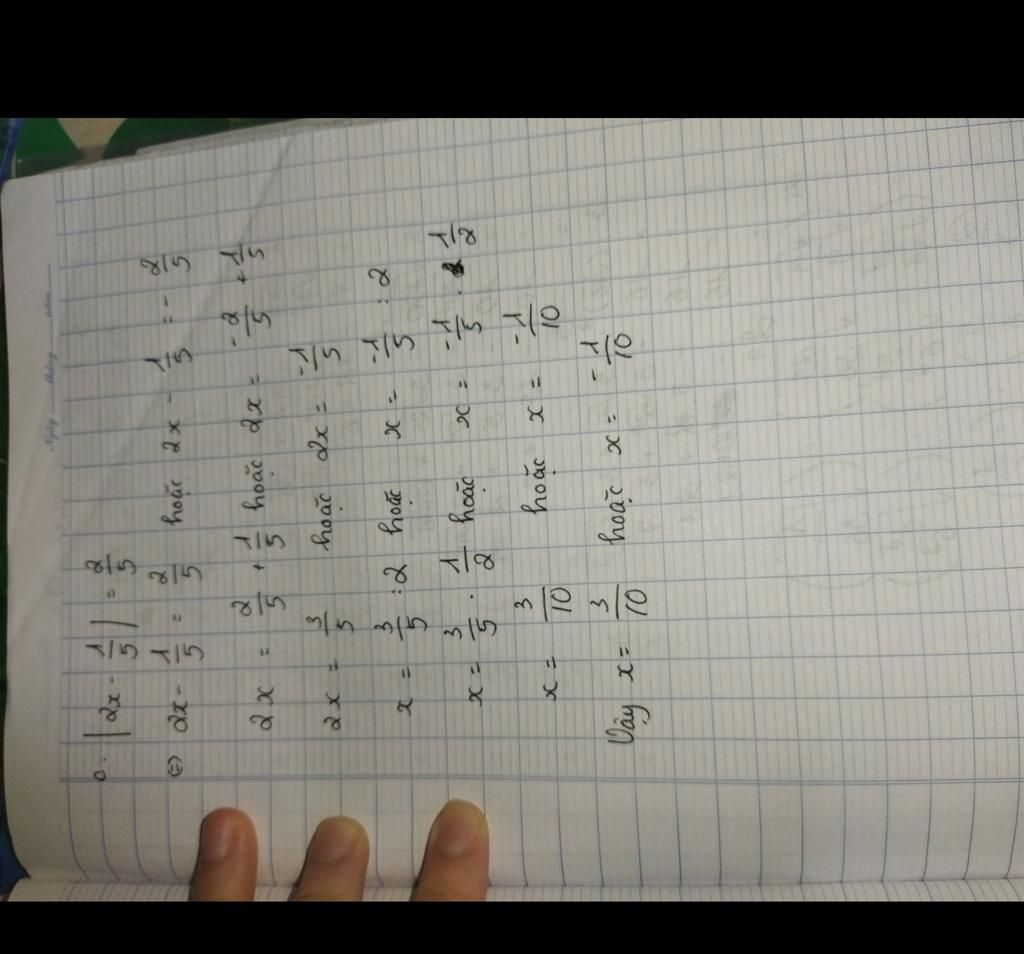 Ngày tháng năm
c. |2x - 1/5| = 2/5
(=) 2x - 1/5 = 2/5 hoặc 2x - 1/5 = - 2/5
2x = 2/5 + 1/5 hoặc 2x = - 2/5 + 1/5
2x = 3/5 hoặc 2x = -1/5
x = 3/5 : 2 hoặc x = -1/5 : 2
x = 3/5 . 1/2 hoặc x = -1/5 . 1/2
x = 3/10 hoặc x = -1/10
Vậy x = 3/10 hoặc x = -1/10